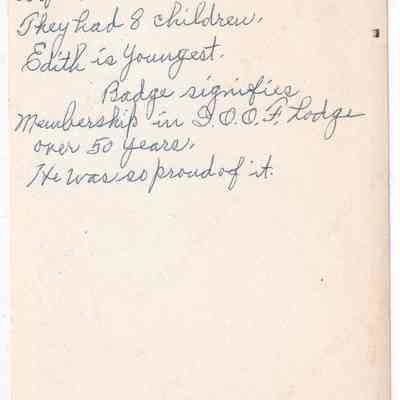 They had 8 children.
Edith is Youngest.
Badge signifies
Membership in I.O.O.F. Lodge
over 50 years.
He was so proud of it.